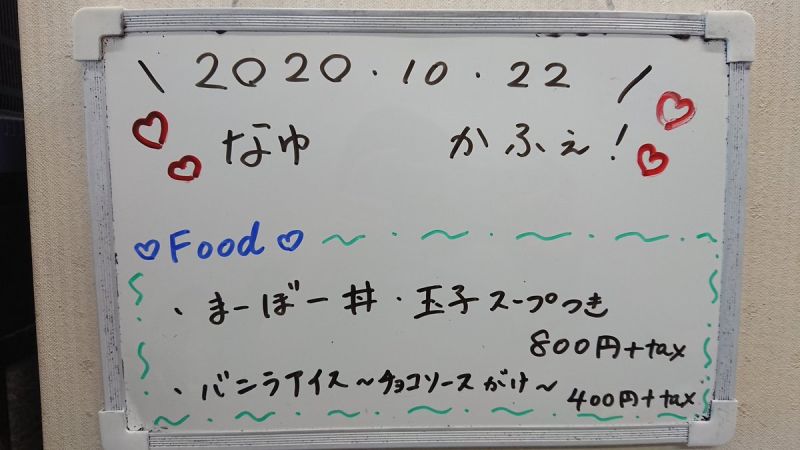 \ 2020.10.22 /
なゆ かふぇ!
♡Food♡
・まーぼー丼・玉子スープつき
800円+tax
・バニラアイス〜チョコソースがけ〜
400円+tax